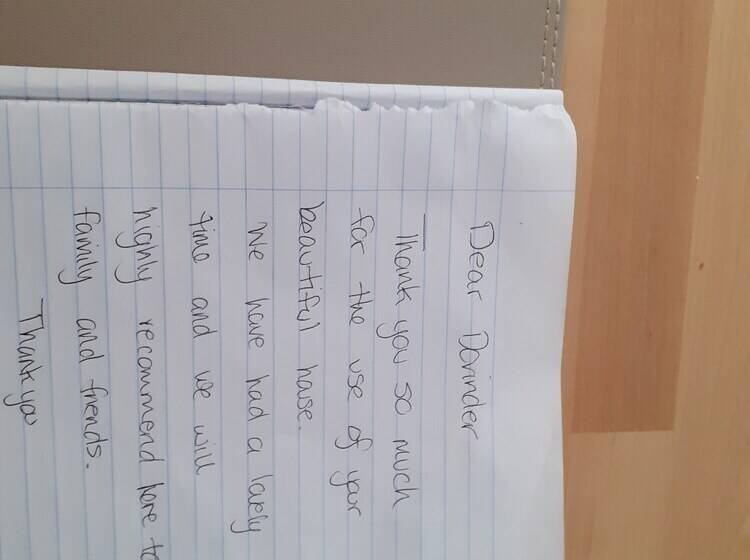 Dear Dorinder
Thank you so much
for the use of your
beautiful house.
We have had a lovely
time and we will
highly recommend here to
family and friends.
Thank you